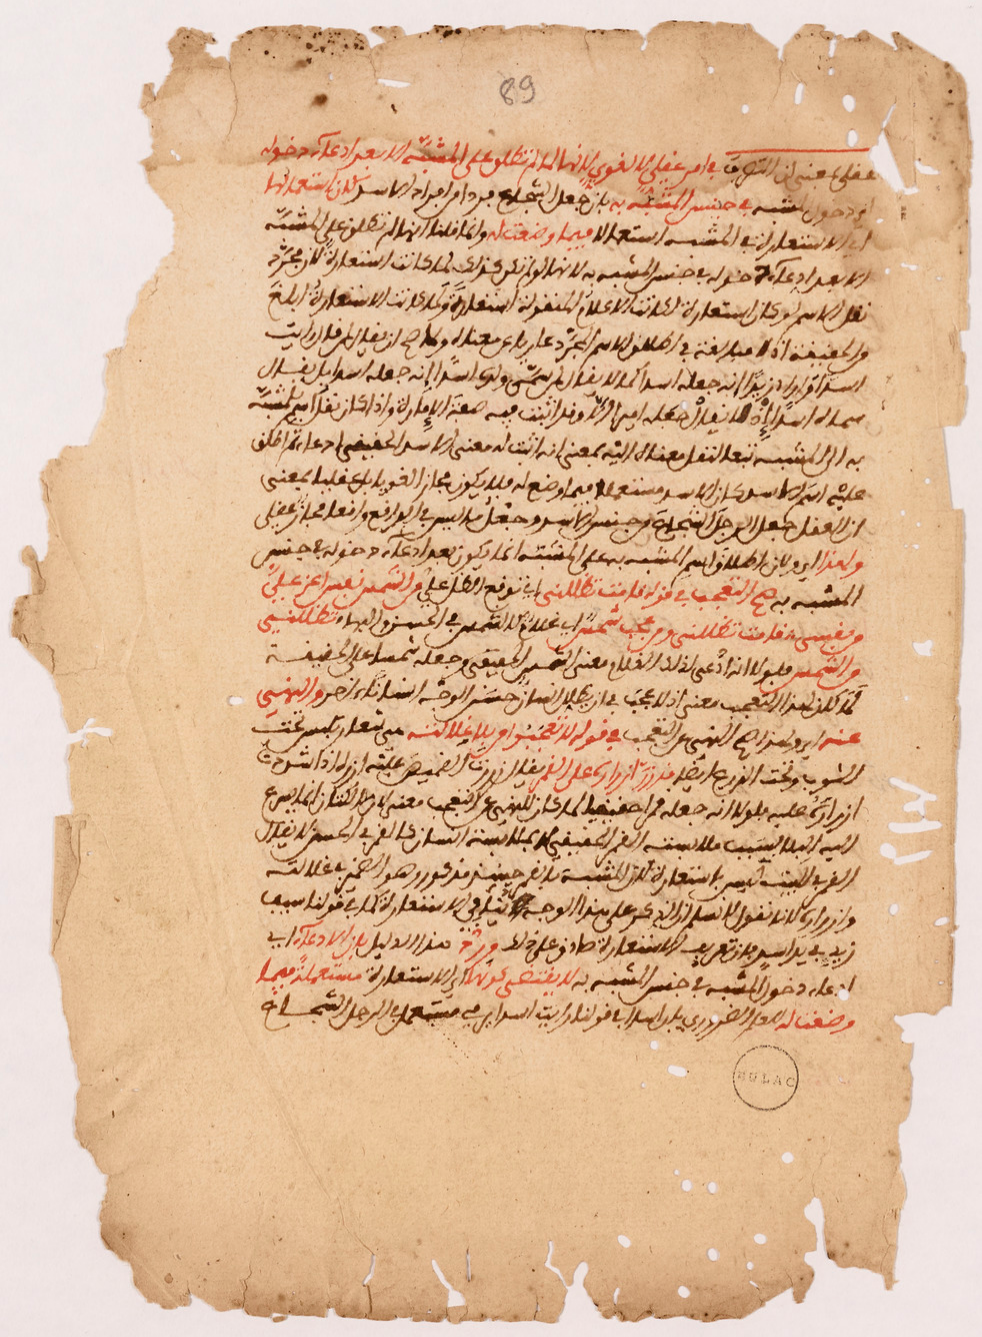 89
عقلي بمعنى ان التصرف في امر عقلي لا لغوي لانها لما لم تطلق على المشبه الا بعد ادعاء دخوله
اي دخول المشبه في جنس المشبه به بان جعل الرجل الشجاع فردا من افراد الاسد كان استعمالها
اي الاستعارة في المشبه استعمالا فيما وضعت له وانما قلنا انها لم تطلق على المشبه
الا بعد ادعاء دخوله في جنس المشبه به لانها لو لم تكن كذلك لما كانت استعارة لان مجرد
نقل الاسم لو كان استعارة لكانت الاعلام المنقولة استعارة ولما كانت الاستعارة ابلغ
من الحقيقة اذ لا مبالغة في اطلاق الاسم المجرد عاريا عن معناه ولما صح ان يقال لمن قال رايت
اسدا واراد زيدا انه جعله اسدا كما لا يقال لمن سمى ولده اسدا انه جعله اسدا بل يقال
سماه اسدا اذ لا يقال جعله اميرا الا وقد اثبت فيه صفة الامارة واذا كان نقل اسم المشبه
به الى المشبه تبعا لنقل معناه اليه بمعنى انه اثبت له معنى الاسد الحقيقي ادعاء ثم اطلق
عليه اسم الاسد كان الاسد مستعملا فيما وضع له فلا يكون مجازا لغويا بل عقليا بمعنى
ان العقل جعل الرجل الشجاع من جنس الاسد وجعل ما ليس في الواقع واقعا مجاز عقلي
ولهذا اي ولان اطلاق اسم المشبه به على المشبه انما يكون بعد ادعاء دخوله في جنس
المشبه به صح التعجب في قوله قامت تظللني اي توقع الظل علي من الشمس نفس اعز علي
من نفسي قامت تظللني ومن عجب شمس اي غلام كالشمس في الحسن والبهاء تظللني
من الشمس فلولا انه ادعى لذلك الغلام معنى الشمس الحقيقي وجعله شمسا على الحقيقة
لما كان لهذا التعجب معنى اذ لا عجب في ان يظلل انسان حسن الوجه انسانا اخر والنهي
عنه اي ولهذا صح النهي عن التعجب في قوله لا تعجبوا من بلا غلالته هي شعار يلبس تحت
الثوب وتحت الدرع ايضا قد زر ازراره على القمر يقال زررت القميص عليه ازره اذا شددت
ازراره عليه فلولا انه جعله قمرا حقيقيا لما كان للنهي عن التعجب معنى لان الكتان انما يسرع
اليه البلا بسبب ملابسة القمر الحقيقي لا بملابسة انسان كالقمر في الحسن لا يقال
القمر في البيت ليس باستعارة لان المشبه مذكور وهو الضمير في غلالته
وازراره لانا نقول لا نسلم ان الذكر على هذا الوجه ينافي الاستعارة كما في قولنا سيف
زيد في يد اسد فان تعريف الاستعارة صادق على ذلك ورد هذا الدليل بان الادعاء اي
ادعاء دخول المشبه في جنس المشبه به لا يقتضي كونها اي الاستعارة مستعملة فيما
وضعت له للعلم الضروري بان اسدا في قولنا رايت اسدا يرمي مستعمل في الرجل الشجاع
BULAC